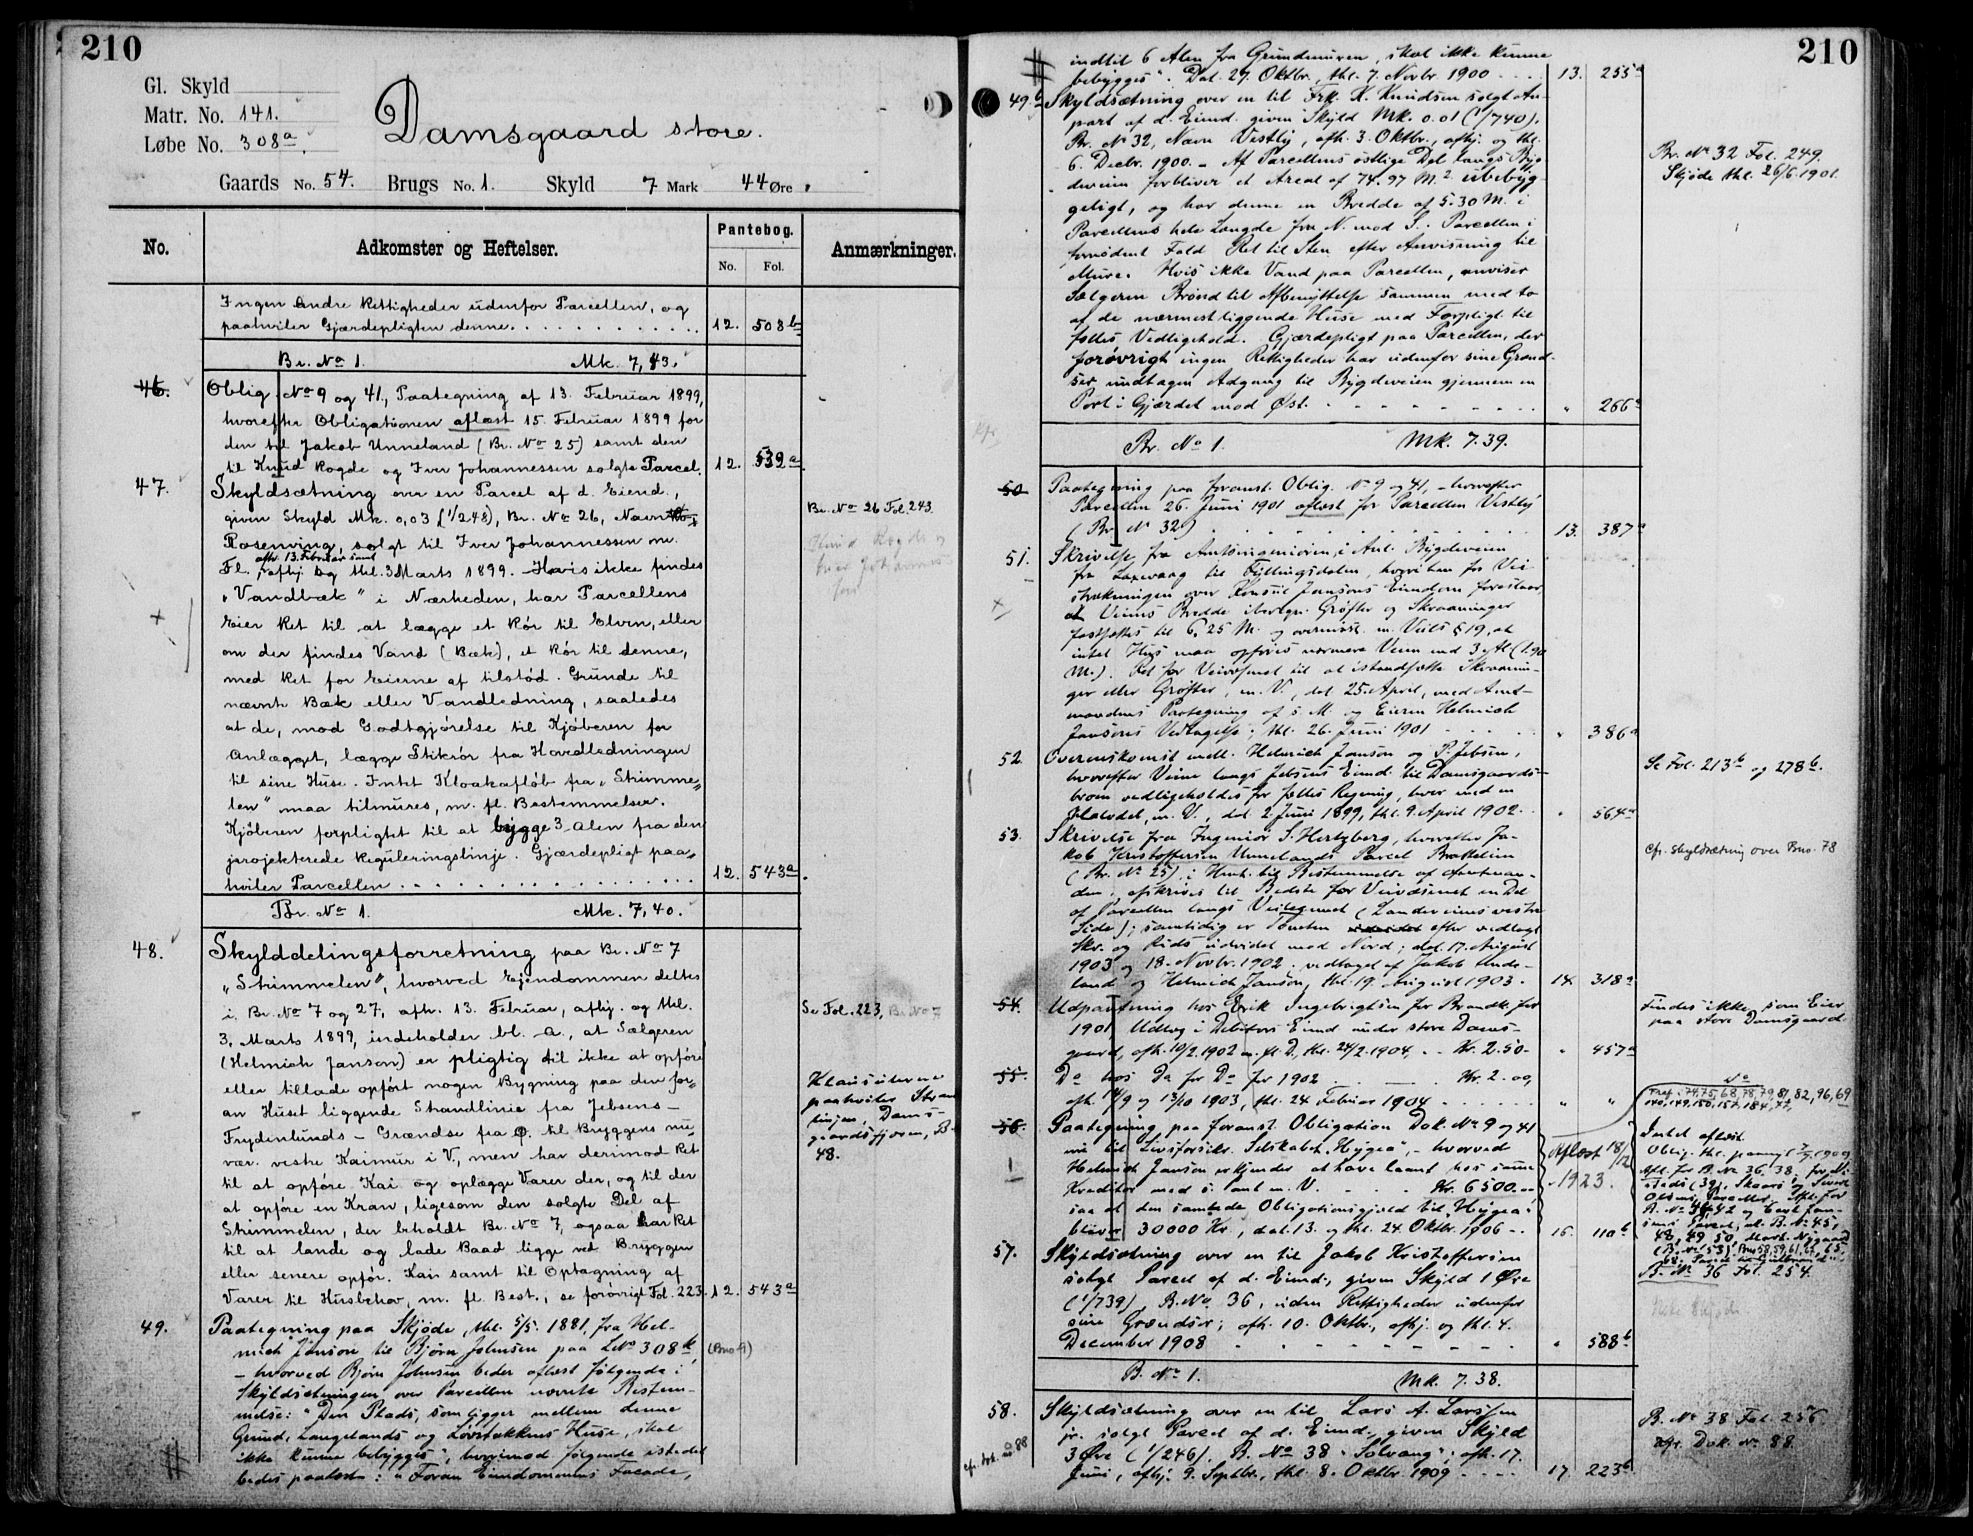 210
Gl. Skyld
Matr. No. 141.
Løbe No. 308a.
Damsgaard store.
Gaards No. 54. Brugs No. 1. Skyld 7 Mark 44 Øre
No. Adkomster og Heftelser. Pantebog. No. Fol. Anmærkninger.
Ingen andre Rettigheder udenfor Parcellen, og
paahviler Gjærdepligten denne. 12. 508b
Br. No 1. Mk. 7,43.
46. Oblig No 9 og 41, Paategning af 13. Februar 1899,
hvorefter Obligationen aflæst 15. Februar 1899 for
den til Jakob Unneland (Br. No 25) samt den
til Knud Rogde og Iver Johannessen solgte Parcel. 12. 532a
47. Skyldsætning over en Parcel af d. Eiend.,
given Skyld Mk. 0,03 (1/248), Br. No 26, Navn Br. No 26 Fol. 243
Rosenving, solgt til Iver Johannessen m.
afh. 13. Februar samt
Fl., afhj. og thl. 3 Marts 1899. – Hvis ikke findes
"Vandbæk" i Nærheden, har Parcellens
Eier Ret til at lægge et Rør til Elven, eller
om der findes Vand (Bæk), et Rør til denne,
med Ret for Eierne af tilstød. Grunde til
nævnte Bæk eller Vandledning, saaledes
at de, mod Godtgjørelse til Kjøberen for
Anlægget, lægge Stikrør fra Hovedledningen
til sine Huse. Intet Kloakafløb fra "Strimme-
len" maa tilmures, m. fl. Bestemmelser.
Kjøberen forpligtet til at bygge 3 Alen fra den
projekterede Reguleringslinje. Gjærdepligt paa-
hviler Parcellen 12. 543a
Br. No 1. Mk. 7,40.
48. Skylddelingsforretning paa Br. No 7
"Strimmelen", hvorved Ejendommen deltes
i Br. No 7 og 27, afh. 13. Februar, afhj. og thl. Se Fol. 223, Br. No 7
3. Marts 1899, indeholder bl. a., at Sælgeren
(Helmich Janson) er pligtig til ikke at opføre
eller tillade opført nogen Bygning paa den for-
an Huset liggende Strandlinie fra Jebsens –
Frydenlunds – Grændse fra Ø. til Bryggens nu-
vær. vestre Kaimur i V., men har derimod Ret
til at opføre Kai og oplægge Varer der, og til der
at opføre en Kran, ligesom den solgte Del af
Strimmelen, der beholdt Br. No 7, ogsaa har Ret
til at lande og lade Baad ligge ved Bryggen
eller senere opfør. Kai samt til Optagning af
Varer til Husbehov, m. fl. Best., se forøvrigt Fol. 223. 12. 543a
Klausulerne
paahviler
Dams-
gaardsfjæren, B-
48.
49. Paategning paa Skjøde, thl. 5/5. 1881, fra Hel-
mich Janson til Bjørn Johnsen paa LNo 308 (Bno 4)
– hvorved Bjørn Johnsen beder aflæst følgende i
Skyldsætningen over Parcellen nævnte Bestem-
melse: "Den Plads, som ligger mellem denne
Grund, Langelands og Løvstakkens Huse, skal
ikke kunne bebygges", hvorimod følgende istedet
bedes paalæst: "Foran Eiendommens Facade,
210
indtil 6 Alen fra Grundmuren, skal ikke kunne
bebygges". Dat. 27. Oktbr., thl. 7. Novbr. 1900 13. 255a
49.b Skyldsætning over en til Frk. K. Knudsen solgt An-
part af d. Eiend. given Skyld Mk. 0.01 (1/740).
Br. No 32, Navn Vestly, afh. 3. Oktbr., afhj. og thl. Br. No 32 Fol. 249.
6. Decbr. 1900. – Af Parcellens østlige Del langs Byg- Skjøde thl. 26/6. 1901.
deveien forbliver et Areal af 74.97 M.2 ubebyg-
geligt, og har denne en Bredde af 5.30 M. i
Parcellens hele Længde fra N. mod S. Parcellen i
fornødent Fald Ret til Sten efter Anvisning til
Mure. Hvis ikke Vand paa Parcellen, anviser
Sælgeren Brønd til Afbenyttelse sammen med to
af de nærmestliggende Huse med Forpligt. til
fælles Vedligehold. Gjærdepligt paa Parcellen, der
forøvrigt ingen Rettigheder har udenfor sine Grænd-
ser undtagen Adgang til Bygdeveien gjennem en
Port i Gjærdet mod Øst. " 266a
Br. No 1. Mk. 7.39.
50. Paategning paa foranst. Oblig. No 9 og 41, – hvorefter
Parcellen 26. Juni 1901 aflæst for Parcellen Vestly
(Br. No 32) 13. 387a
51. Skrivelse fra Amtsingeniøren, i Anl. Bygdeveien
fra Laxevaag til Fyllingsdalen, hvori han for Vei-
strækningen over Konsul Jansons Eiendom foreslaar
at Veiens Bredde iberegn. Grøfter og Skraaninger
fastsættes til 6.25 M. og overensst. m. Veils. § 19, at
intet Hus maa opføres nærmere Veien end 3 Al. (1.90
M.). Ret for Veivæsenet til at istandsætte Skraanin-
ger eller Grøfter, m. V., dat. 25. April, med Amt-
mandens Paategning af s. M. og Eieren Helmich
Jansons Vedtagelse; thl. 26. Juni 1901 " 386a
52. Overenskomst mell. Helmich Janson og P. Jebsen, Se Fol. 213b og 278b.
hvorefter Veien langs Jebsens Eiend. til Damsgaards-
broen vedligeholdes for fælles Regning, hver med en
Halvdel, m. V., dat. 2 Juni 1899, thl. 9. April 1902 " 564a
53. Skrivelse fra Ingeniør S. Hertzberg, hvorefter Ja- cfr. skyldsætning over Bno. 78
kob Kristoffersen Unnelands Parcel Brattelien
(Br. No 25), i Henh. til Bestemmelse af Amtman-
den, afskrives til Bedste for Veivæsenet en Del
af Parcellen langs Veilegemet (Landeveiens vestre
Side); samtidig er Tomten efter vedlagt
Skr. og Rids udvidet mod Nord; dat. 17. August
1903 og 18. Novbr. 1902, vedtaget af Jakob Unde-
land og Helmich Janson, thl. 19. August 1903. 14. 318a
54. Udpantning hos Erik Ingebrigtsen for Brandk. for Findes ikke som Eier
1901. Udlæg i Debitors Eiend. under store Dams- paa store Damsgaard.
gaard, afh. 10/2. 1902 m. fl. D., thl. 24/2. 1904. Kr. 2.50 " 457a
55. Do hos Do for Do for 1902 Kr. 2.00, Do
afh. 14/9 og 13/10 1903, thl. 24 Februar 1904 " "
56. Paategning paa foranst. Obligation Dok. No 9 og 41
nu til Livsforsikr. Selskabet "Hygea", – hvorved Aflæst 18/12
Helmich Janson erkjender at have laant hos samme 1923.
Kreditor med s. Pant m. V. Kr. 6500.00
saa at den samlede Obligationsgjæld til "Hygea"
bliver 30000 Kr., dat. 13. og thl. 24 Oktbr. 1906 16. 110b
57. Skyldsætning over en til Jakob Kristoffersen
solgt Parcel af d. Eiend., given Skyld 1 Øre B. No 36 Fol. 254.
(1/739), B. No 36, uden Rettigheder udenfor
sine Grændser; afh. 10. Oktbr., afhj. og thl. 4.
December 1908 " 588b
B. No 1. Mk. 7.38.
58. Skyldsætning over en til Lars A. Larssen
jr. solgt Parcel af d. Eiend., given Skyld B. No 38 Fol. 256.
3 Øre (1/246), B. No 38 "Solvang"; afh. 17. cfr. Dok. no 88.
Juni, afhj. 9. Septbr., thl. 8. Oktbr. 1909 17. 223b
cfr. dok. no 88